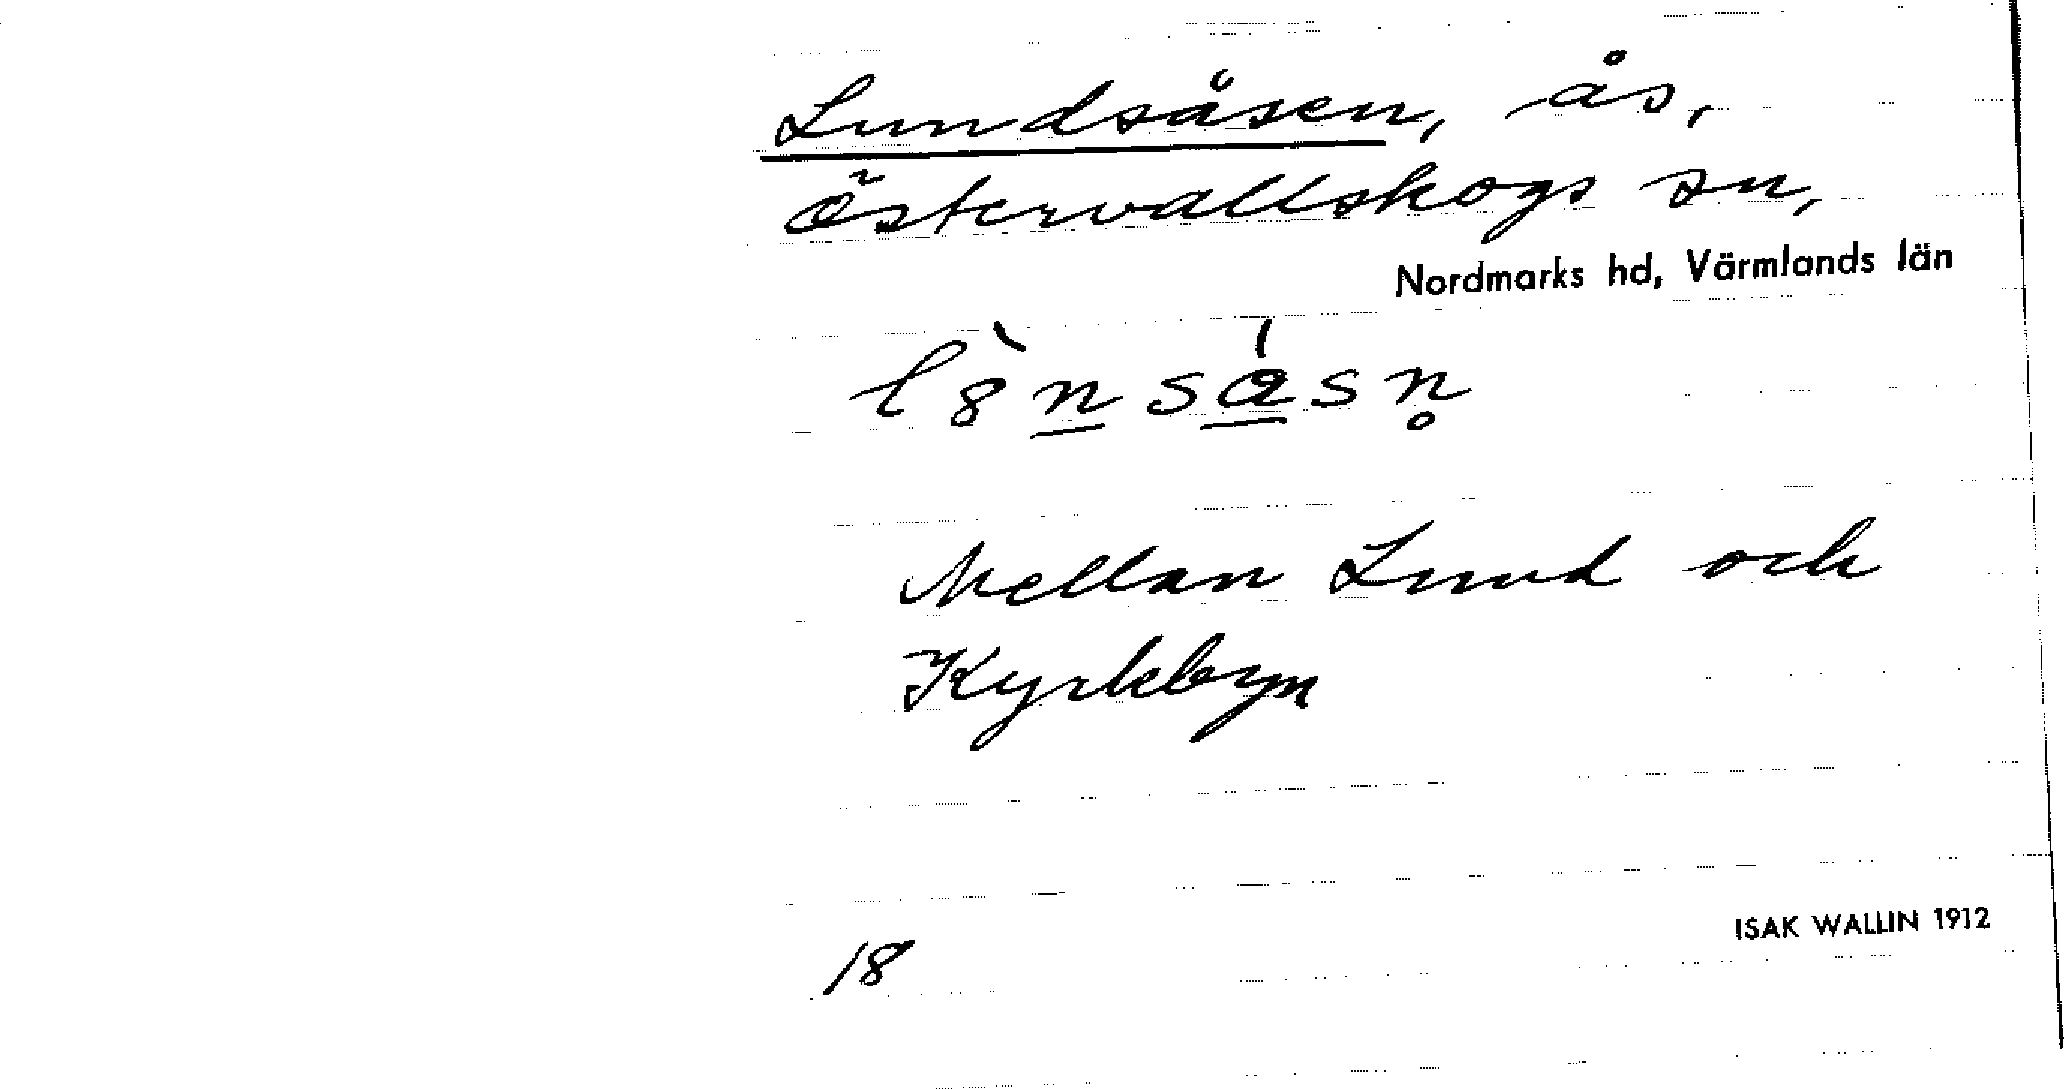 Lundsåsen, ås,
Östervallskogs sn,
Nordmarks hd, Värmlands län
Mellan Lund och
Kyrkebyn
18
ISAK WALLIN 1912